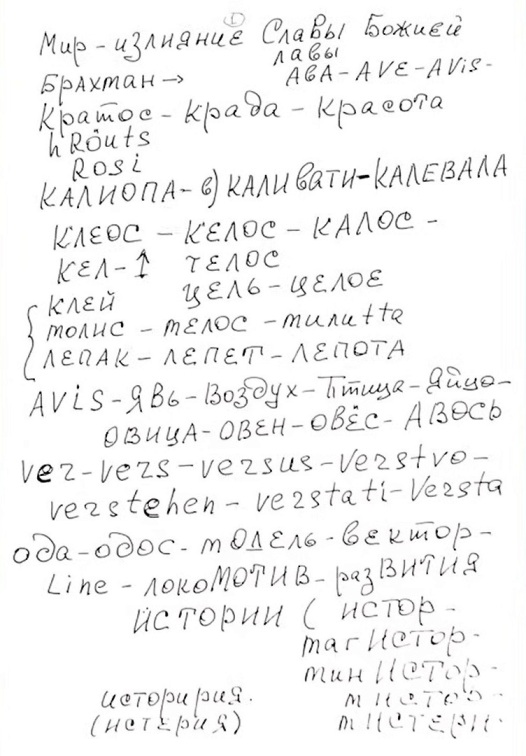 ①
Мир – излияние Славы Божией
лавы
Брахман → АВА – AVE – AViS –
Кратос – Крада – Красота
hRöuts
Rosi
КАЛИОПА – в) КАЛИвати – КАЛЕВАЛА
КЛЕОС – КЕЛОС – КАЛОС –
КЕЛ – ↑ ТЕЛОС
КЛЕЙ ЦЕЛЬ – ЦЕЛОЕ
толис – тЕЛОС – тилиtta
ЛЕПАК – ЛЕПЕТ – ЛЕПОТА
AViS – ЯВЬ – Воздух – Птица – Яйцо –
ОВИЦА – ОВЕН – ОВЁС – АВОСЬ
Ver – vers – versus – Verstvo –
verstehen – verstati – Versta
ода – одос – тОДЕЛЬ – вектор –
Line – локоМОТИВ – разВИТИЯ
ИСТОРИИ ( ИСТОР –
магИСТОР –
минИСТОР –
историрия. мИСТОР –
(истерия) мИСТЕРИ